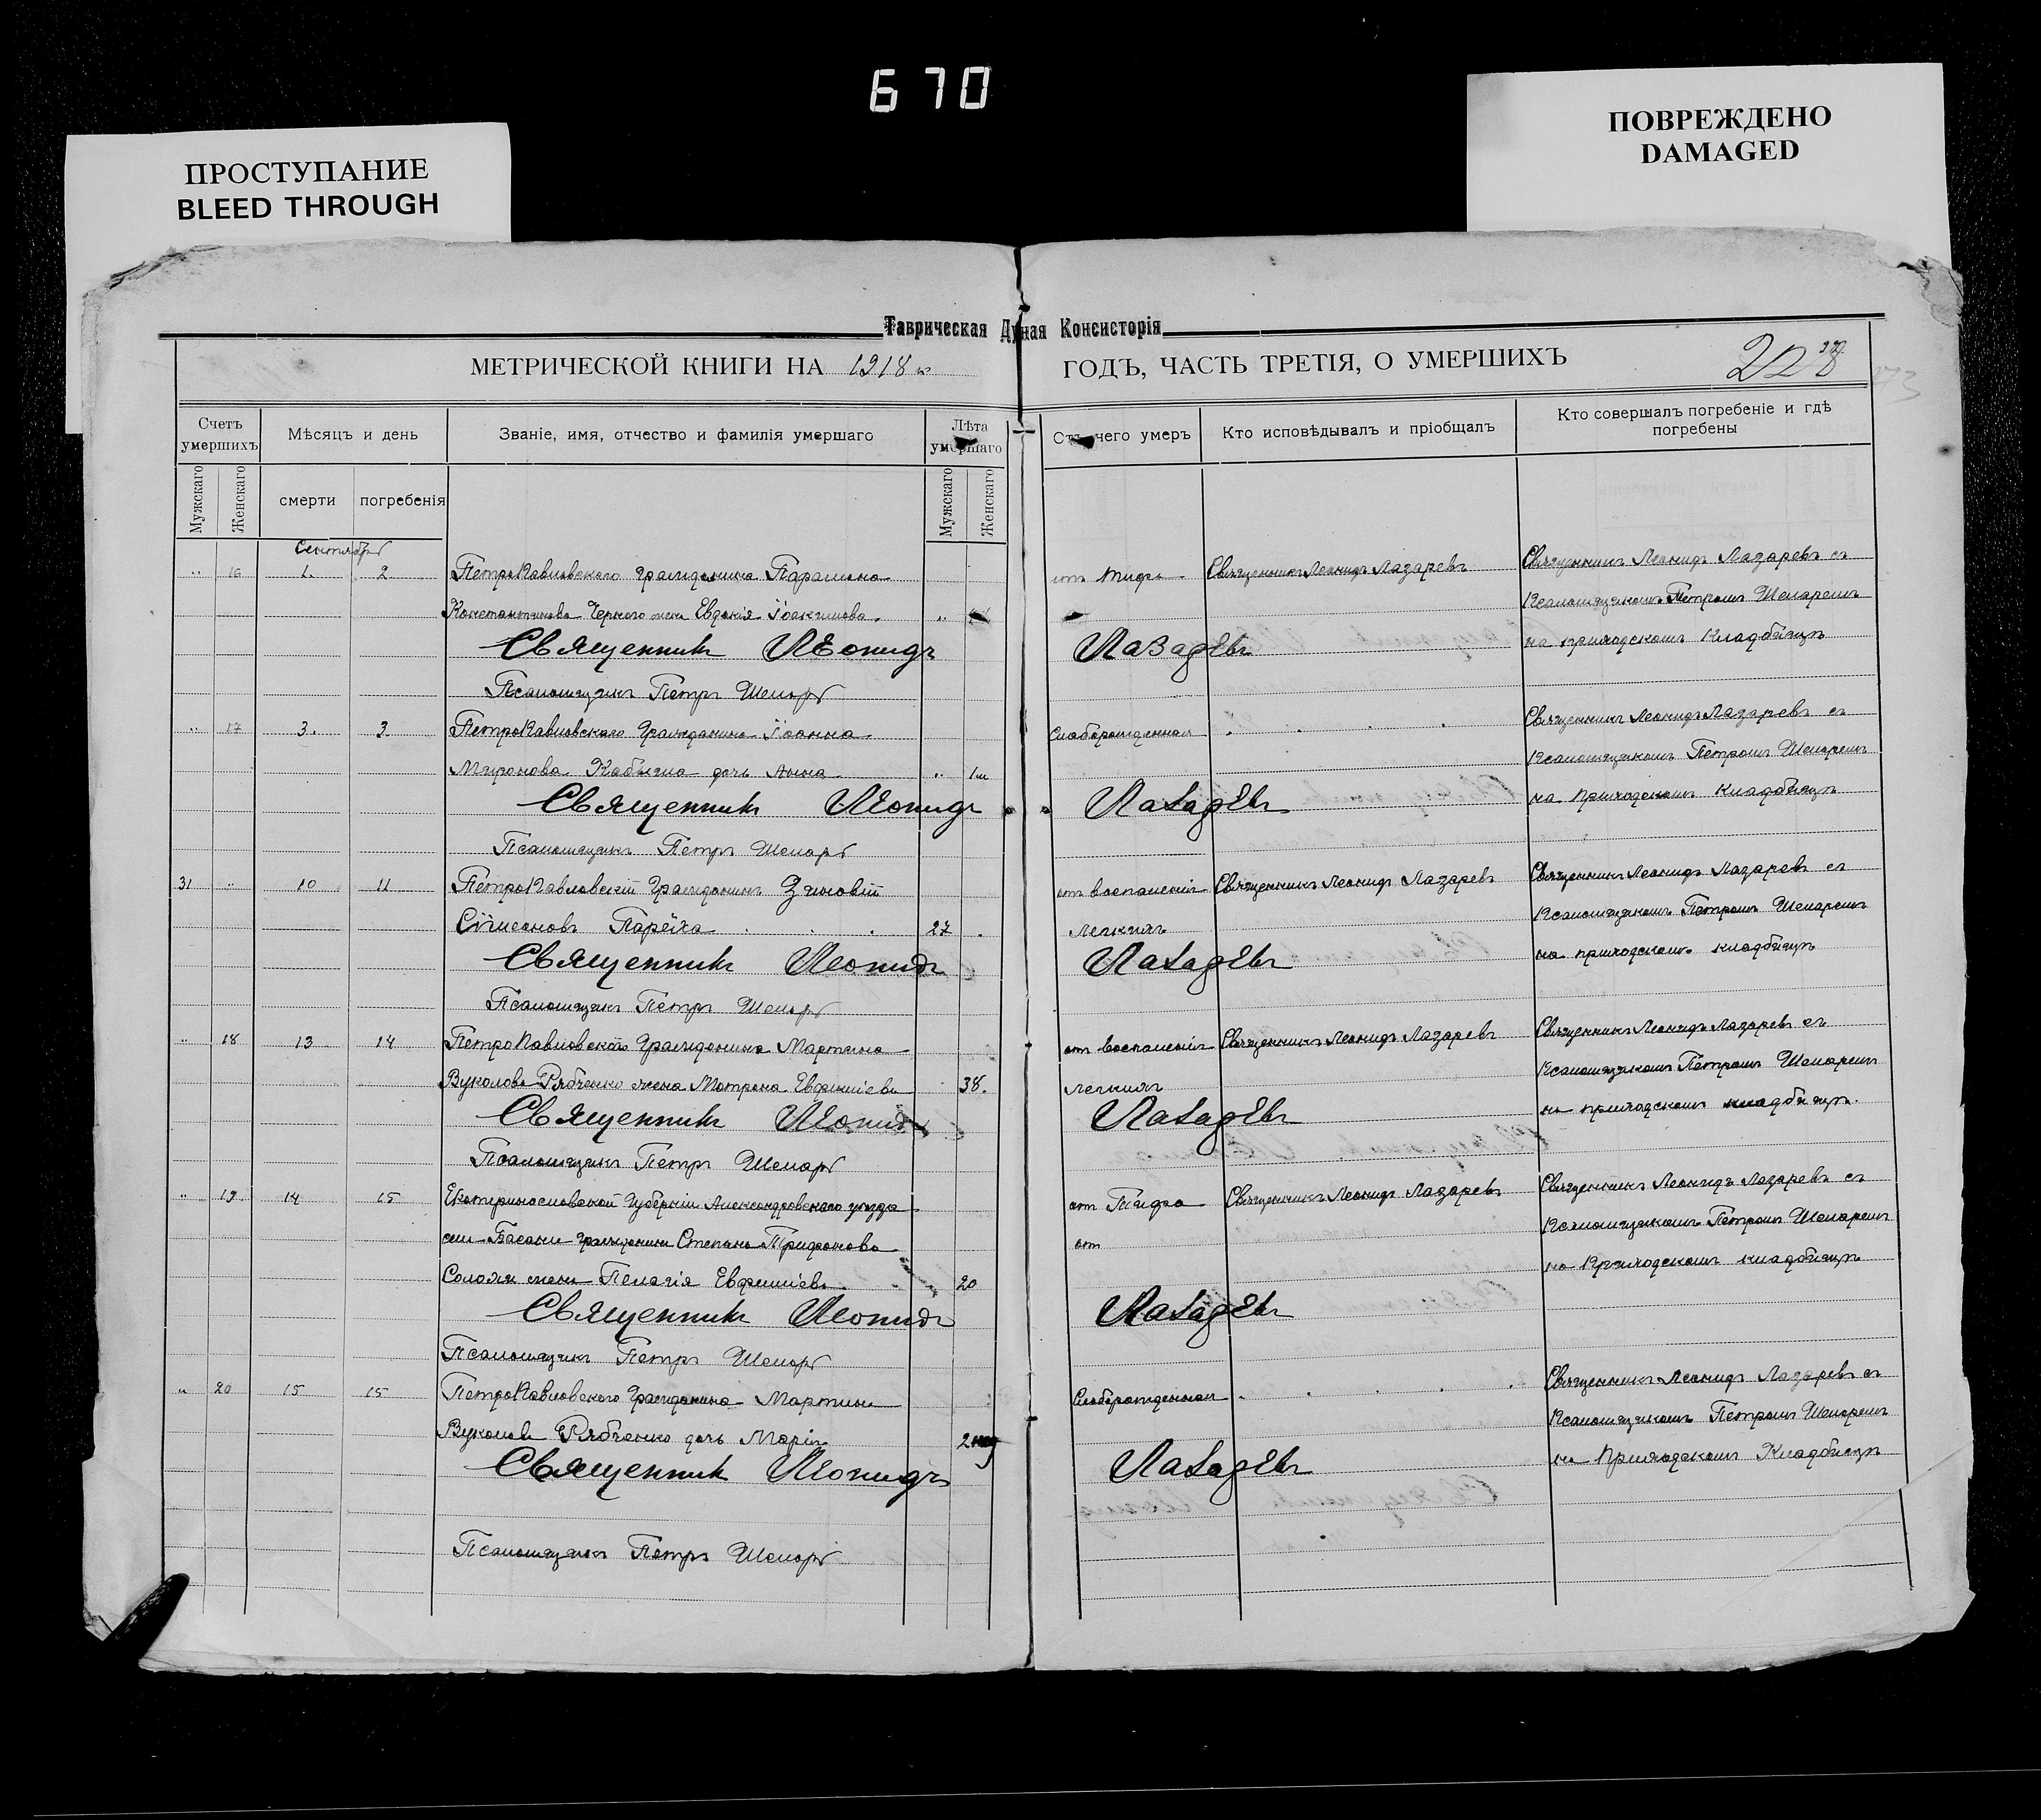 670
ПРОСТУПАНИЕ
BLEED THROUGH
ПОВРЕЖДЕНО
DAMAGED
Таврическая Дуная Консисторія
МЕТРИЧЕСКОЙ КНИГИ НА 1918 й
ГОДЪ, ЧАСТЬ ТРЕТІЯ, О УМЕРШИХЪ
228
Счетъ умершихъ
Мѣсяцъ и день
Званіе, имя, отчество и фамилія умершаго
Лѣта умершаго
Отъ чего умеръ
Кто исповѣдывалъ и пріобщалъ
Кто совершалъ погребеніе и гдѣ погребены
Мужскаго
Женскаго
смерти
погребенія
Мужскаго
Женскаго
Сентябрь
" 16 1. 2 ПетроПавловского Гражданина Парамона от тифа Священникъ Леонидъ Лазаревъ Священникъ Леонидъ Лазаревъ съ
Константинова Черного жена Евдокія Іоакимова " Псаломщикомъ Петромъ Шепаремъ
Священникъ Леонидъ Лазаревъ на приходскомъ кладбищѣ
Псаломщикъ Петръ Шепарь
" 17 3. 3 ПетроПавловского Гражданина Іоанна Слаборожденная Священникъ Леонидъ Лазаревъ съ
Миронова дочь Анна " 1м Псаломщикомъ Петромъ Шепаремъ
Священникъ Леонидъ Лазаревъ на приходскомъ кладбищѣ
Псаломщикъ Петръ Шепарь
31 " 10 11 ПетроПавловскій Гражданинъ Зиновій от воспаленія Священникъ Леонидъ Лазаревъ Священникъ Леонидъ Лазаревъ съ
Сѵмеоновъ 27 легкихъ Псаломщикомъ Петромъ Шепаремъ
Священникъ Леонидъ Лазаревъ на приходскомъ кладбищѣ
Псаломщикъ Петръ Шепарь
" 18 13 14 ПетроПавловского Гражданина Мартина от воспаленія Священникъ Леонидъ Лазаревъ Священникъ Леонидъ Лазаревъ съ
Вуколова Рябченко жена Матрона Евфиміева 38. легкихъ Псаломщикомъ Петромъ Шепаремъ
Священникъ Леонидъ Лазаревъ на приходскомъ кладбищѣ
Псаломщикъ Петръ Шепарь
" 19 14 15 Екатеринославской Губерніи Александровскаго уѣзда от Тифа Священникъ Леонидъ Лазаревъ Священникъ Леонидъ Лазаревъ съ
села Басани гражданина Степана Трифонова от Псаломщикомъ Петромъ Шепаремъ
жена Пелагія Евфиміева 20 на Приходскомъ кладбищѣ
Священникъ Леонидъ Лазаревъ
Псаломщикъ Петръ Шепарь
" 20 15 15 ПетроПавловского Гражданина Мартина Слаборожденная Священникъ Леонидъ Лазаревъ съ
Вуколова Рябченко дочь Марія 2 нед Псаломщикомъ Петромъ Шепаремъ
Священникъ Леонидъ Лазаревъ на Приходскомъ Кладбищѣ
Псаломщикъ Петръ Шепарь